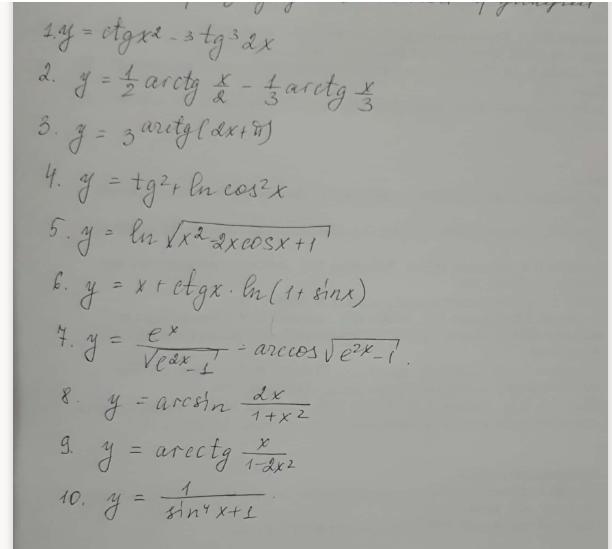 1. y = ctgx² - 3tg³2x
2. y = 1/2 arctg x/2 - 1/3 arctg x/3
3. y = 3^arctg(2x+π)
4. y = tg²+ ln cos²x
5. y = ln √(x²-2xcosx+1)
6. y = x + ctgx · ln(1+sinx)
7. y = e^x/√(e^2x-1) - arccos √(e^2x-1).
8. y = arcsin 2x/(1+x²)
9. y = arcctg x/(1-2x²)
10. y = 1/(sin⁴x+1)